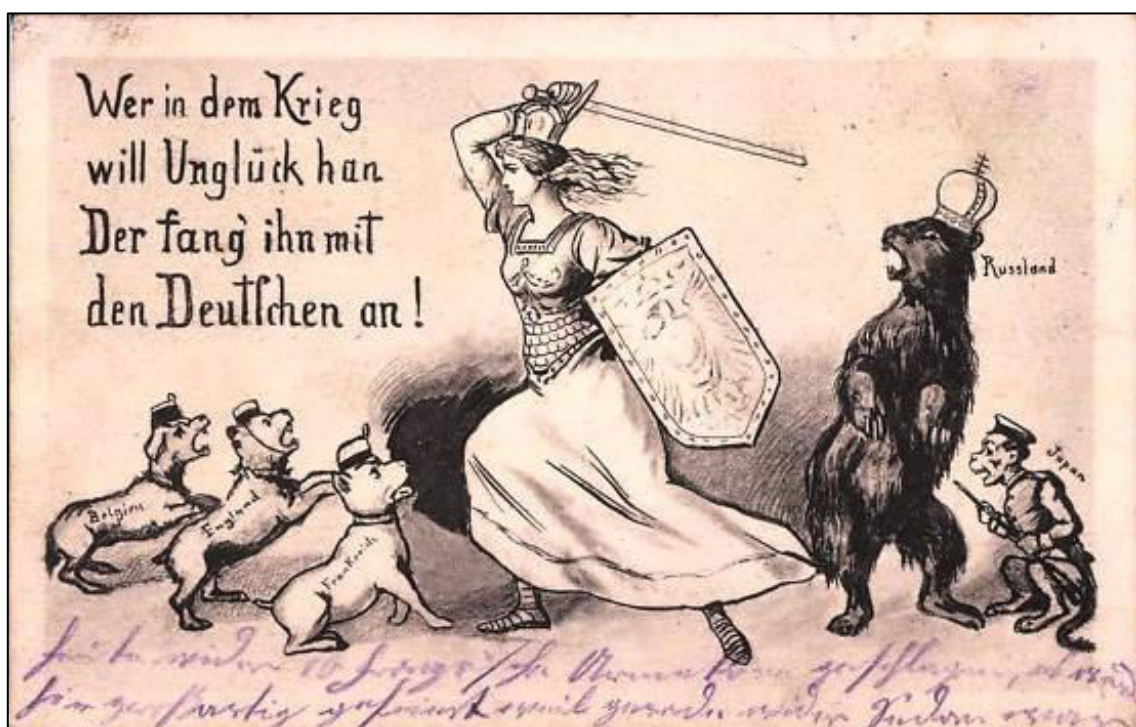 Wer in dem Krieg
will Unglück han
Der fang' ihn mit
den Deutschen an!
Russland
Japan
Belgien
England
Frankreich
heute wieder 10 französische Armee geschlagen, 
hier großartig gefeiert weil gerade wieder Sedan